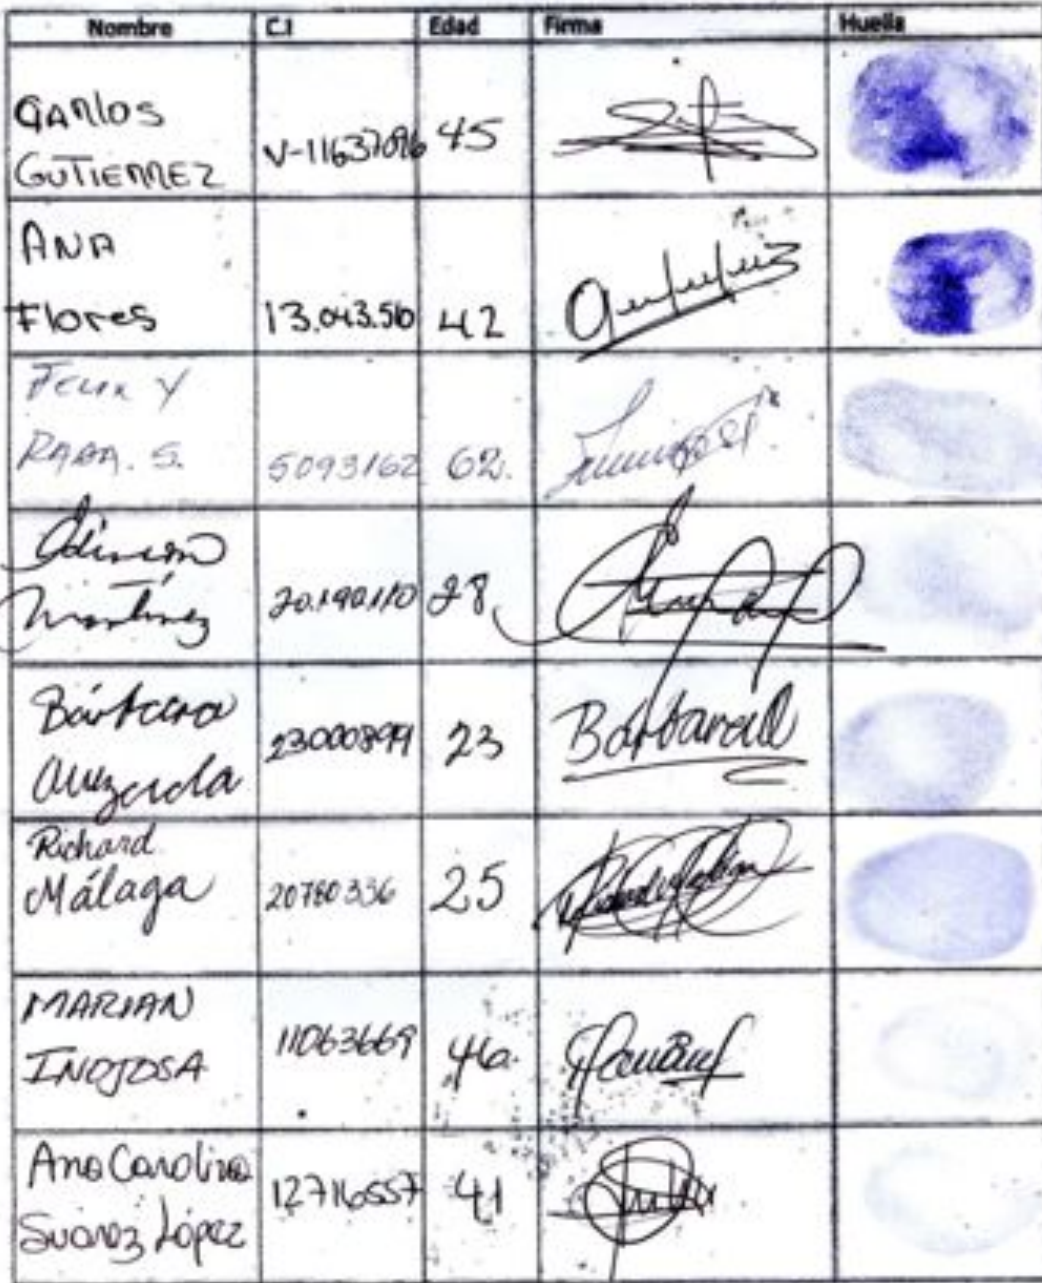 Nombre C.I Edad Firma Huella
CARlOS
GUTIERREZ V-11637096 45
ANA
Flores 13.043.510 42
FELIX Y
RADA. S. 5093162 62.
Martínez 20.190.110 28
Bárbara Barbarall
23000899 23
Richard
Málaga 20780336 25
MARIAN
INOJOSA 11063669 46
Ana Carolina
Suárez López 12716557 41